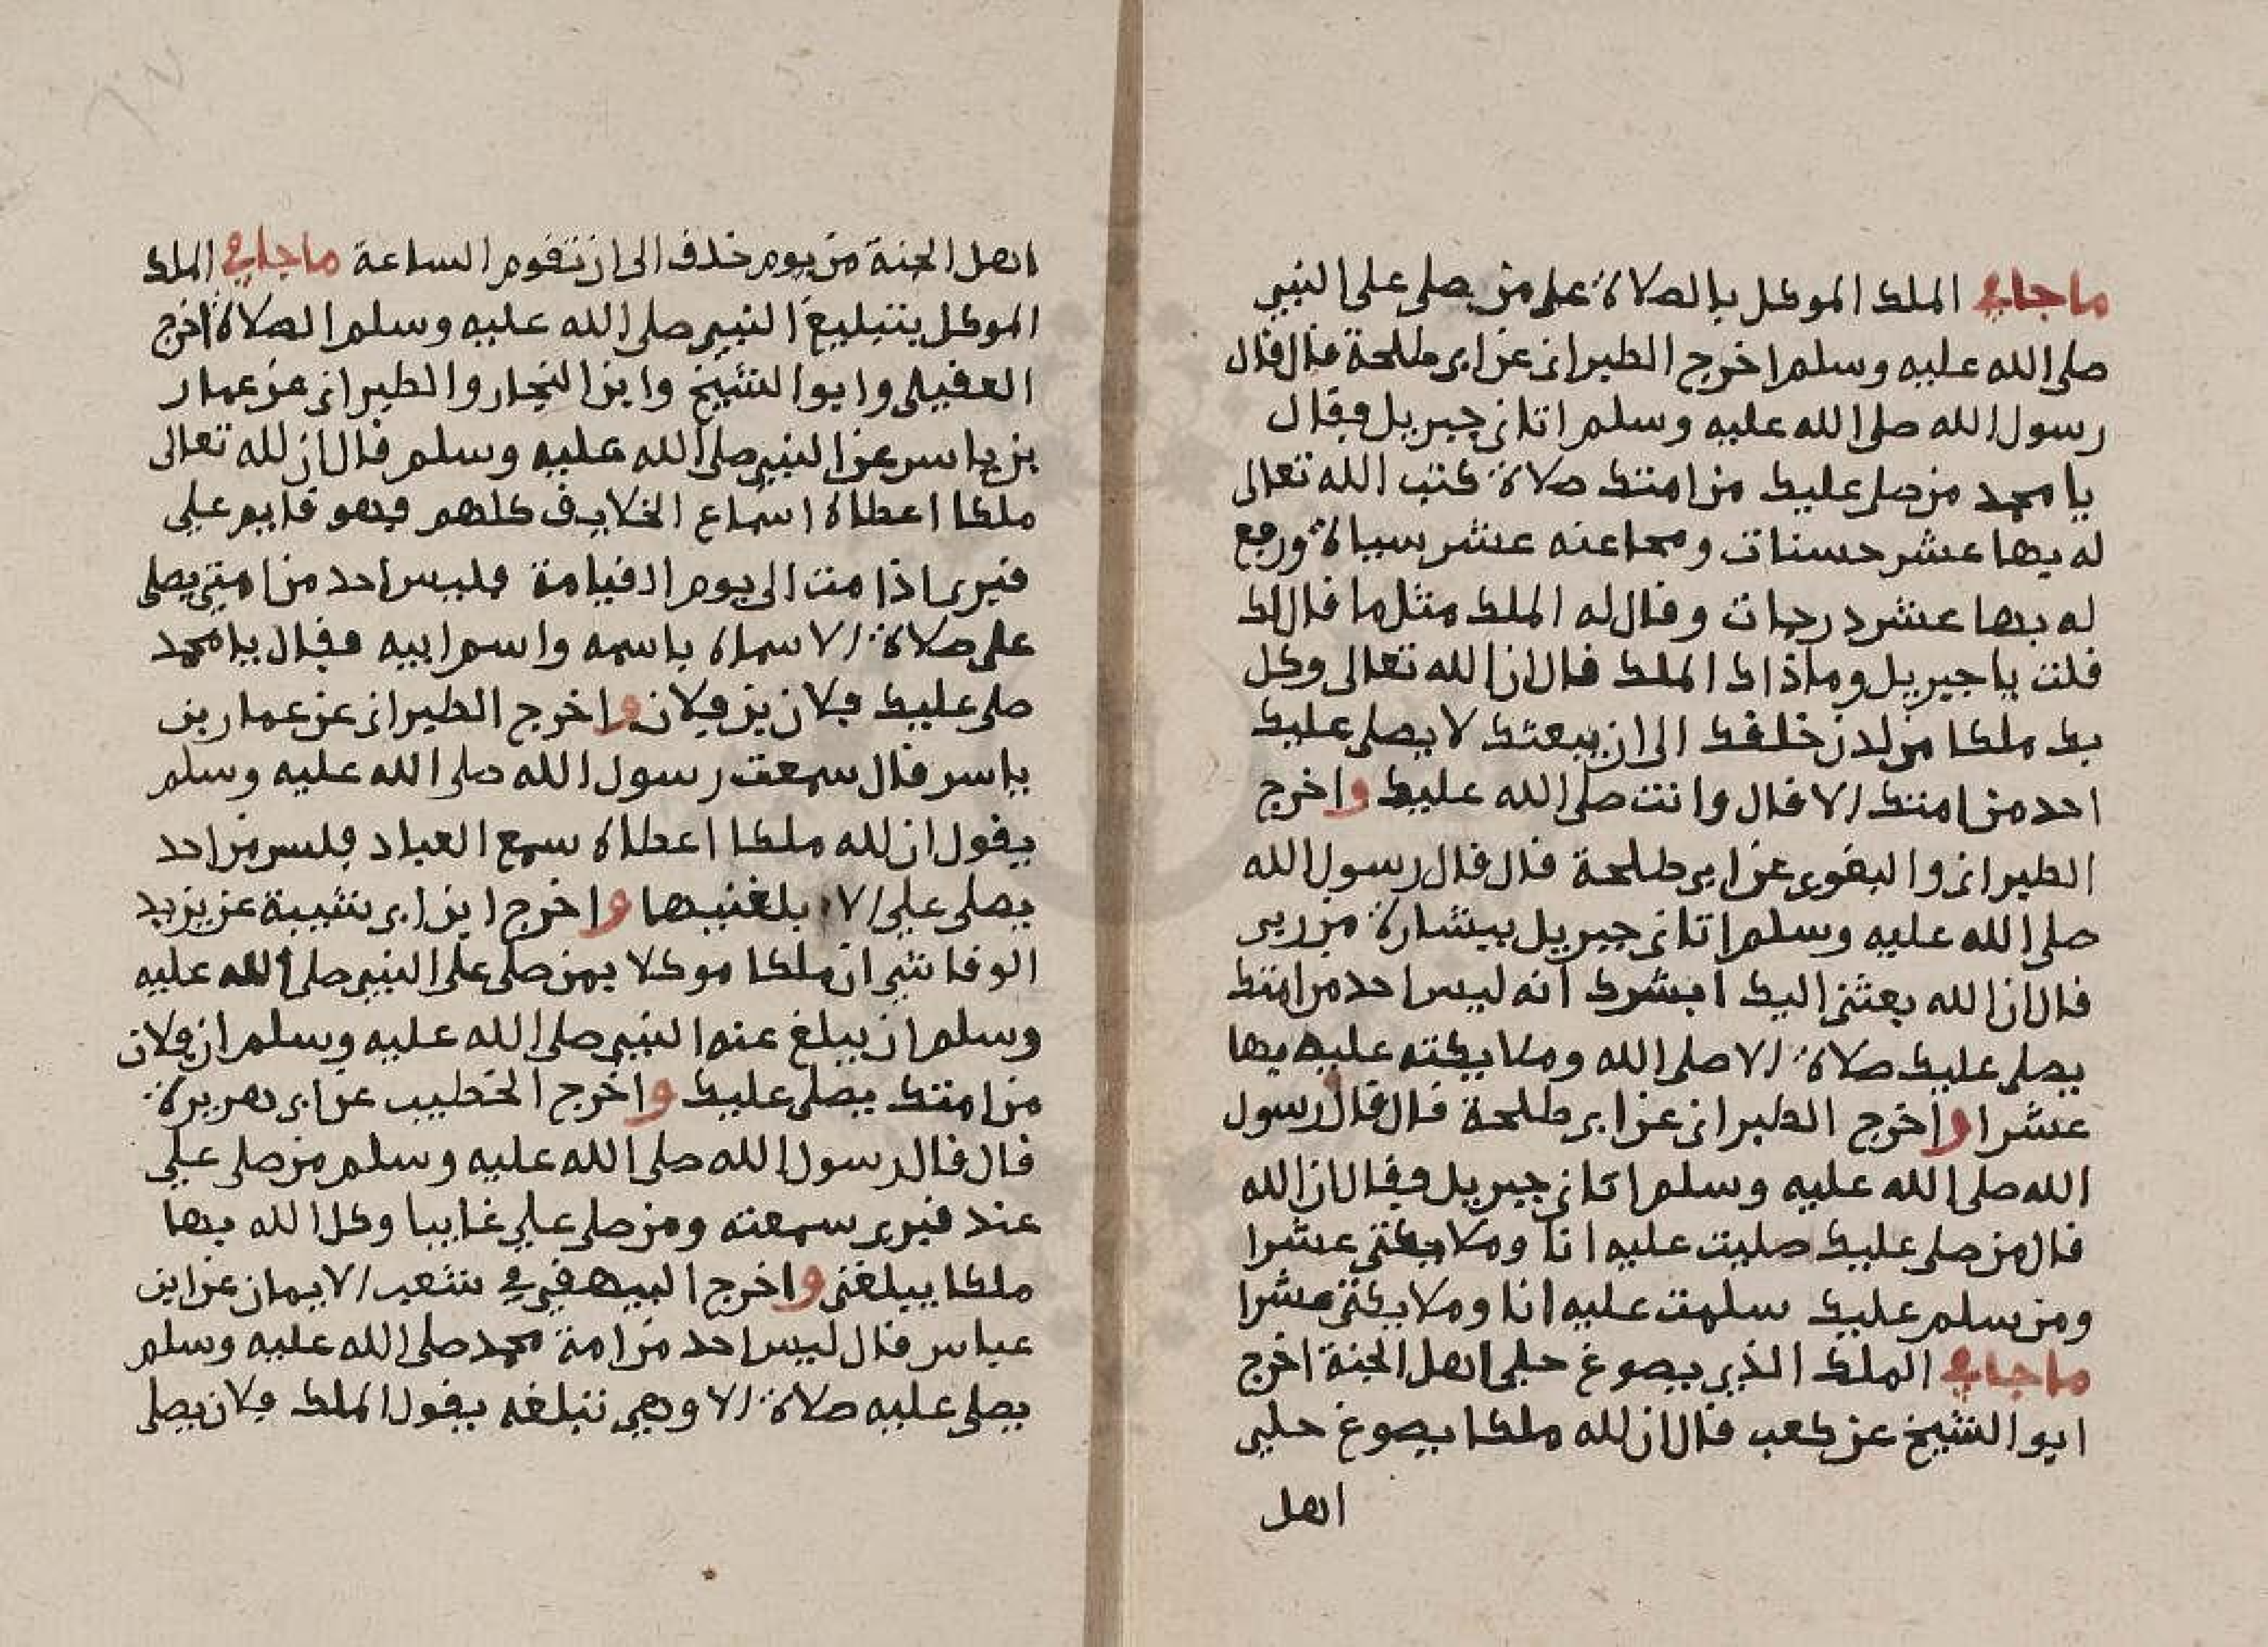 ما جا في الملك الموكل بالصلاة على من يصلى على النبي
صلى الله عليه وسلم اخرج الطبرانى عن ابى طلحة قال قال
رسول الله صلى الله عليه وسلم اتانى جبريل فقال
يا محمد من صلى عليك من امتك صلاة كتب الله تعالى
له بها عشر حسنات ومحا عنه عشر سياة ورفع
له بها عشر درجات وقال له الملك مثل ما قال لك
قلت يا جبريل وما ذاك الملك قال ان الله تعالى وكل
بك ملكا من لدن خلقك الى ان يبعثك لا يصلى عليك
احد من امتك الا قال وانت صلى الله عليك واخرج
الطبرانى والبغوى عن ابى طلحة قال قال رسول الله
صلى الله عليه وسلم اتانى جبريل ببشارة من ربى
قال ان الله بعثنى اليك ابشرك انه ليس احد من امتك
يصلى عليك صلاة الا صلى الله وملايكته عليه بها
عشرا واخرج الطبرانى عن ابى طلحة قال قال رسول
الله صلى الله عليه وسلم اتانى جبريل فقال ان الله
قال من صلى عليك صليت عليه انا وملايكتى عشرا
ومن سلم عليك سلمت عليه انا وملايكتى عشرا
ما جا في الملك الذى يصوغ حلى اهل الجنة اخرج
ابوا الشيخ عن كعب قال ان لله ملكا يصوغ حلى
اهل
اهل الجنة من يوم خلق الى ان تقوم الساعة ما جا في الملك
الموكل بتبليغ النبي صلى الله عليه وسلم الصلاة اخرج
العقيلى وابوا الشيخ وابن النجار والطبرانى عن عمار
بن ياسر عن النبي صلى الله عليه وسلم قال ان لله تعالى
ملكا اعطاه اسماع الخلايق كلهم فهو قايم على
قبرى اذا مت الى يوم القيامة فليس احد من امتى يصلى
على صلاة الا سماه باسمه واسم ابيه فقال يا محمد
صلى عليك فلان بن فلان واخرج الطبرانى عن عمار بن
ياسر قال سمعت رسول الله صلى الله عليه وسلم
يقول ان لله ملكا اعطاه سمع العباد فليس من احد
يصلى على الا بلغنيها واخرج ابن ابى شيبة عن يزيد
الوقاشى ان ملكا موكلا بمن صلى على النبي صلى الله عليه
وسلم ان يبلغ عنه النبي صلى الله عليه وسلم ان فلان
من امتك يصلى عليك واخرج الخطيب عن ابى هريرة
قال قال رسول الله صلى الله عليه وسلم من صلى على
عند قبرى سمعته ومن صلى على غايبا وكل الله بها
ملكا يبلغنى واخرج البيهقى في شعب الايمان عن ابن
عباس قال ليس احد من امة محمد صلى الله عليه وسلم
يصلى عليه صلاة الا وهى تبلغه يقول الملك فلان يصلى